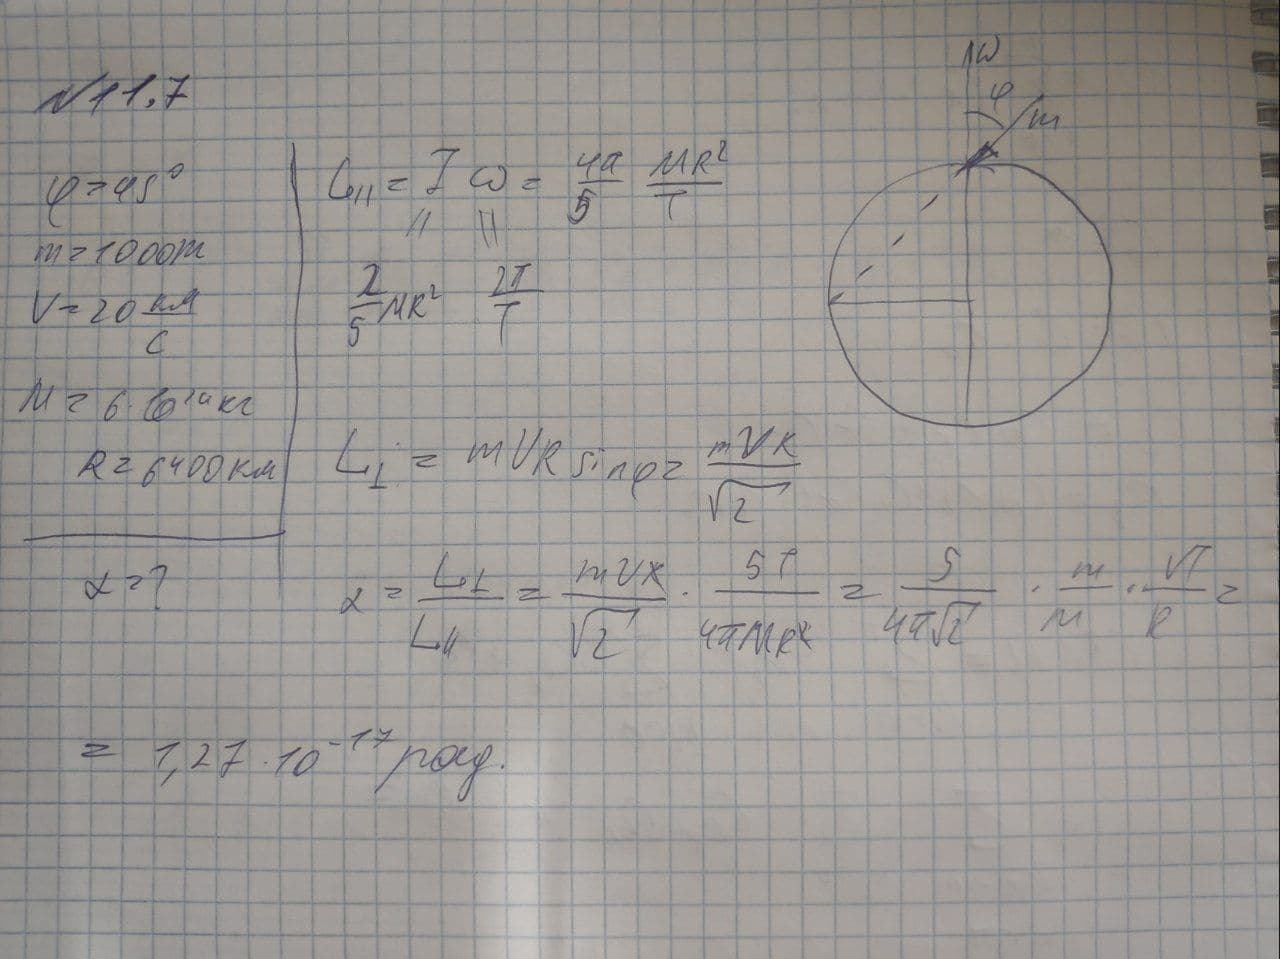 N11.7
φ = 45°
m = 1000т
V = 20 км/с
M = 6·10²⁴ кг
R = 6400 км
α = ?
L₁₁ = I ω = 4π/5 MR²/T
2/5 MR² 2π/T
L⊥ = mVR sinφ = mVR/√2
α = L⊥/L₁₁ = mVR/√2 · 5T/4πMR² = 5/4π√2 · m/M · VT/R =
= 1,27·10⁻¹⁷ рад.
ω
φ
m